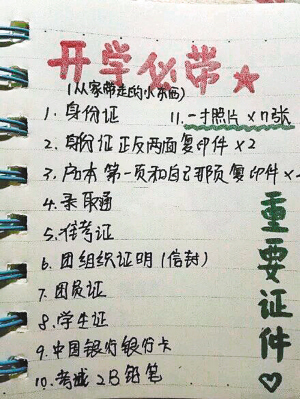 开学必带★
(从家带走的小东西)
1. 身份证
11. 一寸照片×n张
2. 身份证正反两面复印件×2
3. 户口本第一页和自己那页复印件×
4. 录取通
5. 准考证
6. 团组织证明(信封)
7. 团员证
8. 学生证
9. 中国银行银行卡
10. 考试2B铅笔
重要证件♡